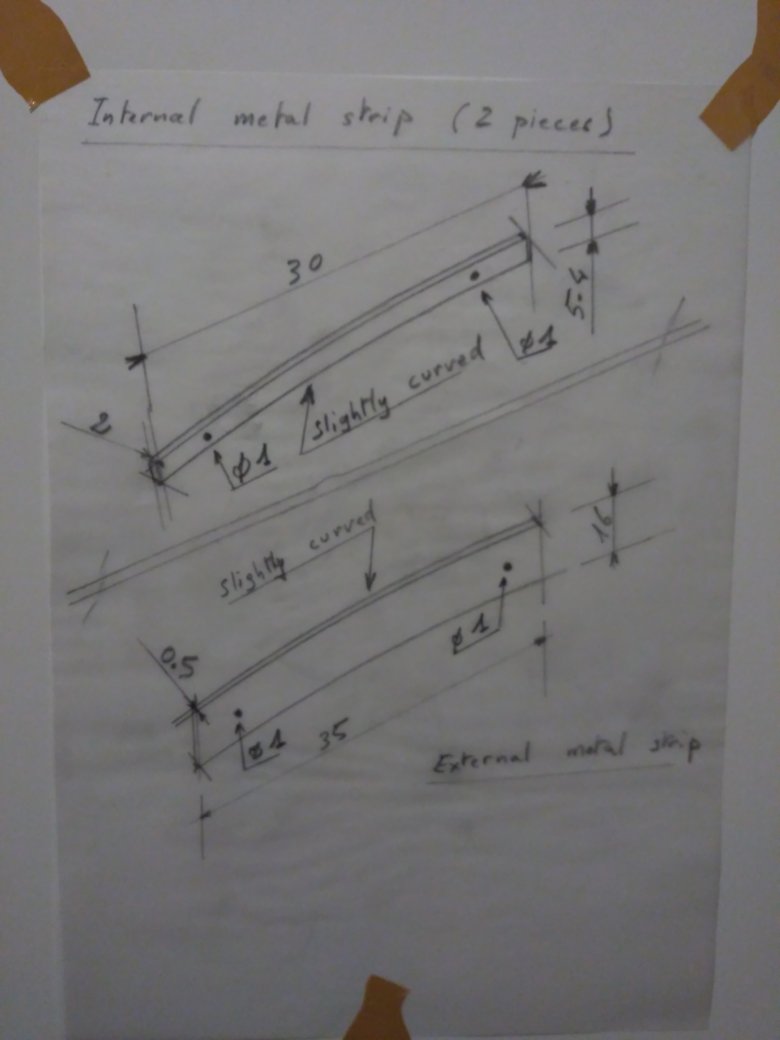 Internal metal strip (2 pieces)
30
5.4
2
ø1
slightly curved
ø1
slightly curved
16
0.5
ø1
ø1
35
External metal strip